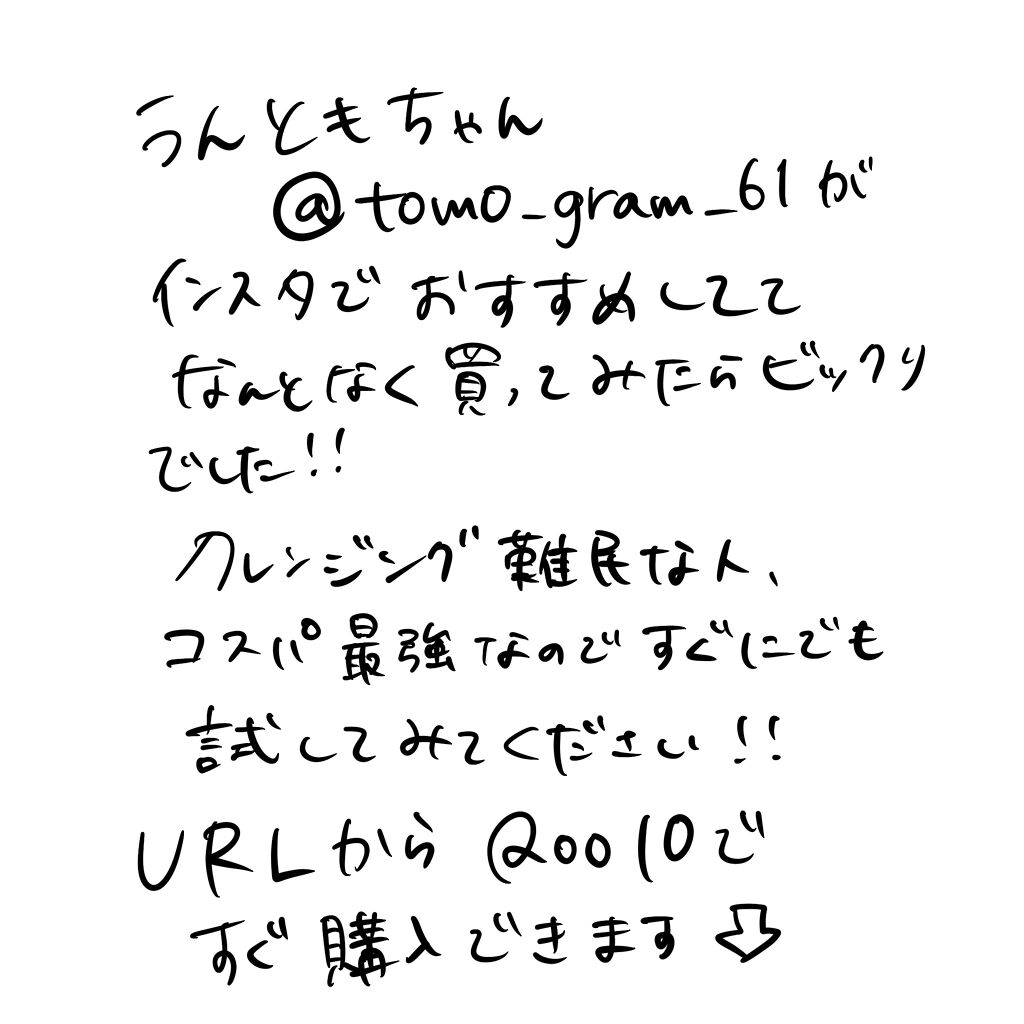 うんともちゃん
@tomo_gram_61が
インスタでおすすめしてて
なんとなく買ってみたらビックリ
でした!!
クレンジング難民な人、
コスパ最強なのですぐにでも
試してみてください!!
URLからQoo10で
すぐ購入できます⇩